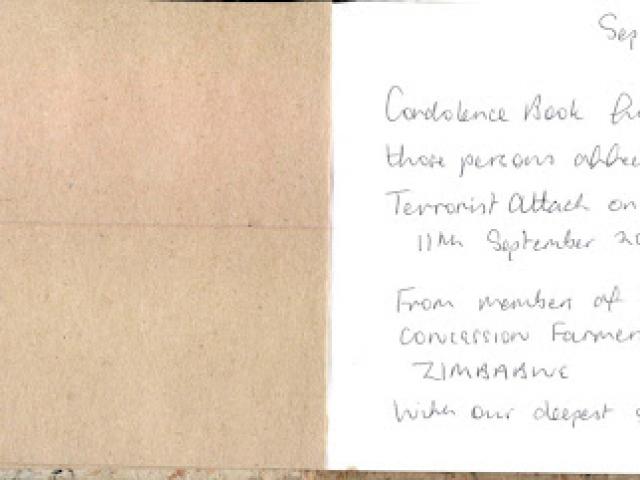 Sep
Condolence Book for
those persons affec
Terrorist Attack on
11th September 20
From member of
Concession Farmer
ZIMBABWE
With our deepest s